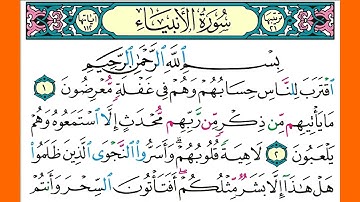 سُورَةُ الأَنبِيَاء
بِسْمِ اللَّهِ الرَّحْمَٰنِ الرَّحِيمِ
ٱقْتَرَبَ لِلنَّاسِ حِسَابُهُمْ وَهُمْ فِى غَفْلَةٍ مُّعْرِضُونَ ١
مَا يَأْتِيهِم مِّن ذِكْرٍ مِّن رَّبِّهِم مُّحْدَثٍ إِلَّا ٱسْتَمَعُوهُ وَهُمْ
يَلْعَبُونَ ٢ لَاهِيَةً قُلُوبُهُمْ ۗ وَأَسَرُّوا۟ ٱلنَّجْوَى ٱلَّذِينَ ظَلَمُوا۟
هَلْ هَٰذَآ إِلَّا بَشَرٌ مِّثْلُكُمْ ۖ أَفَتَأْتُونَ ٱلسِّحْرَ وَأَنتُمْ